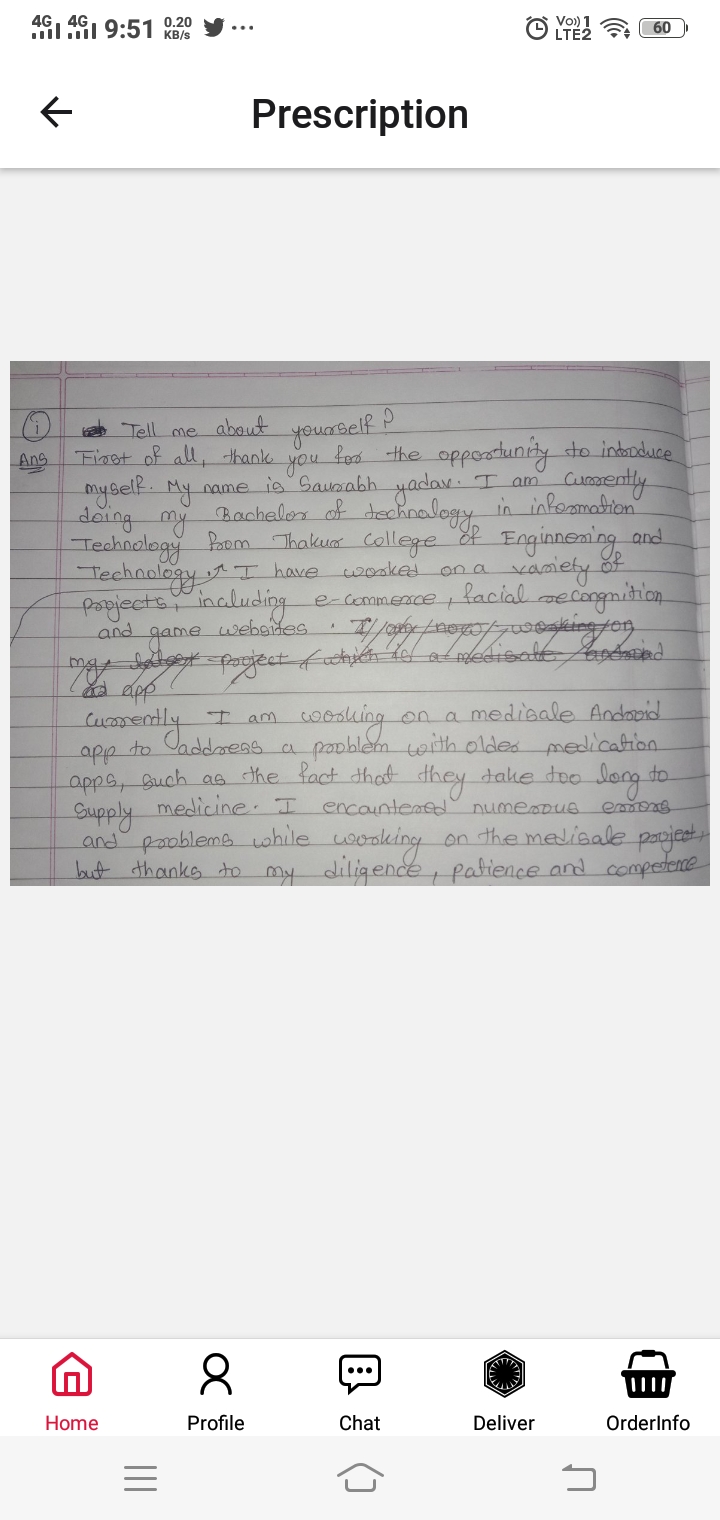 4G 4G 9:51 0.20 KB/s ... Vo)) 1 LTE2 60
Prescription
i Tell me about yourself?
Ans First of all, thank you for the opportunity to introduce
myself. My name is Saurabh yadav. I am Currently
doing my Bachelor of technology in information
Technology from Thakur College of Enginnering and
Technology. I have worked on a variety of
projects, including e-commerce, facial recongnition
and game websites. I am now working on
my latest project which is a medisale android
app
Currently I am working on a medisale Android
app to address a problem with older medication
apps, such as the fact that they take too long to
Supply medicine. I encountered numerous errors
and problems while working on the medisale project,
but thanks to my diligence, patience and competence
Home Profile Chat Deliver OrderInfo